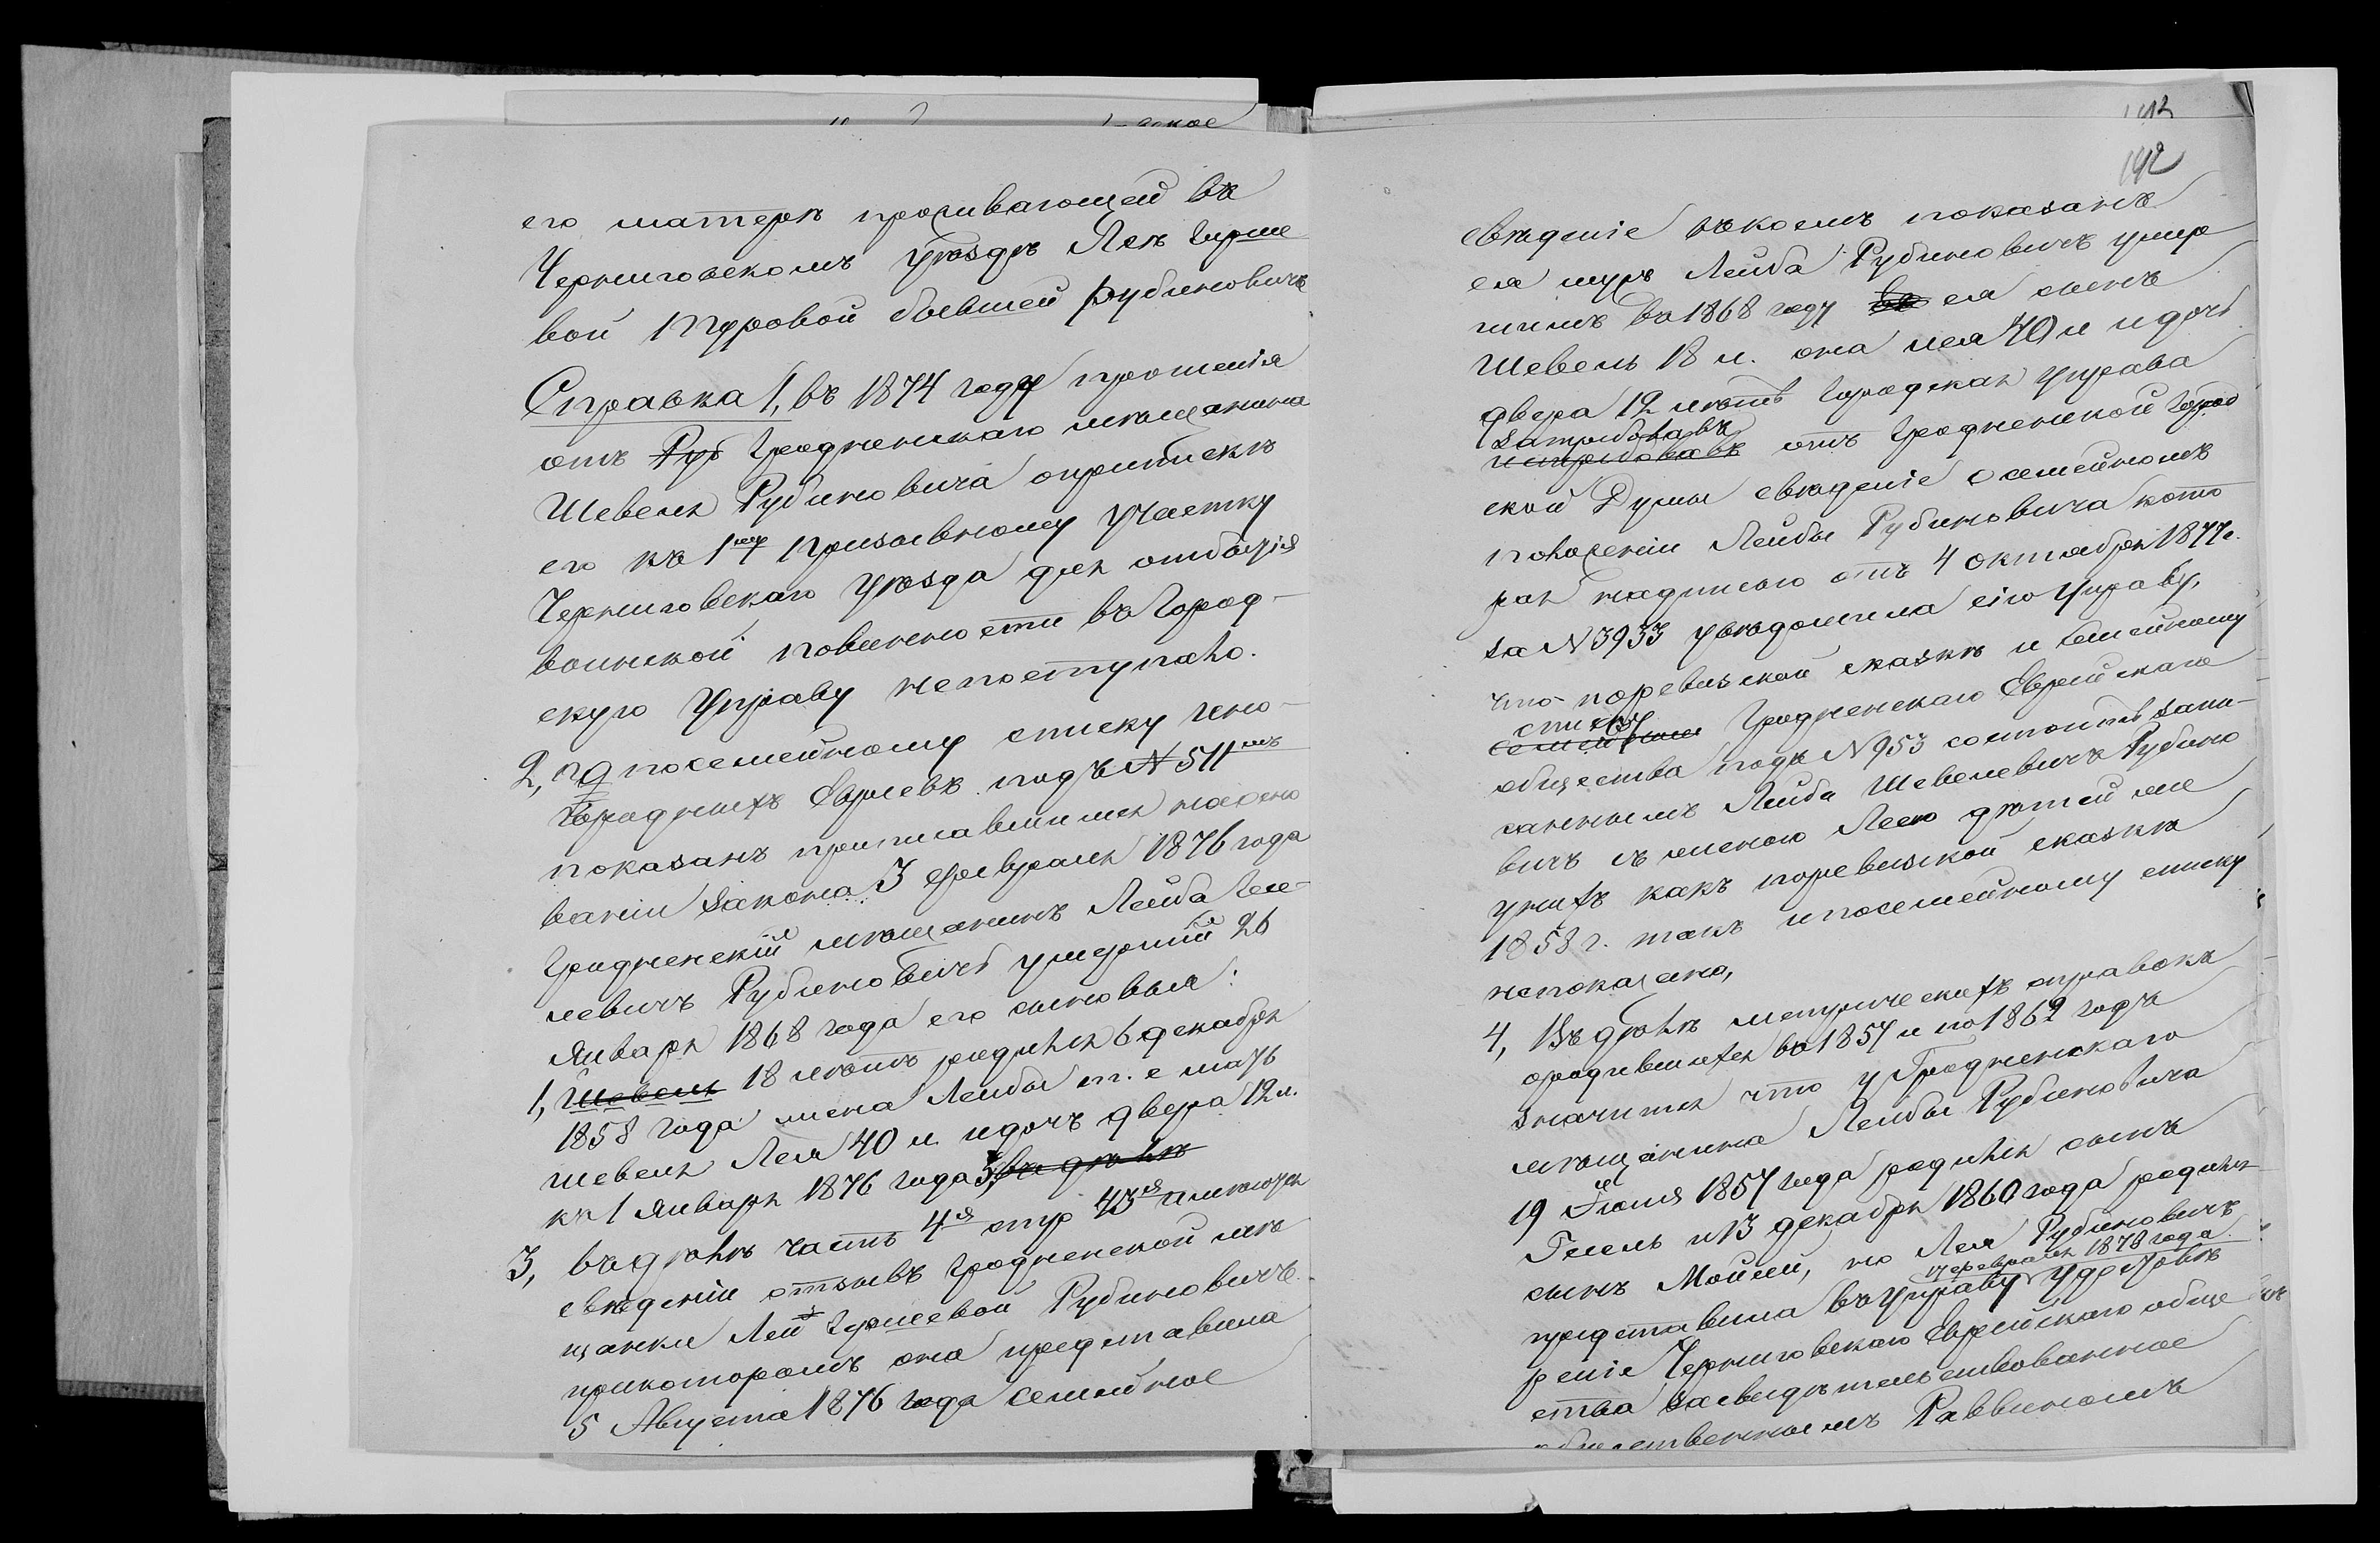 его матери проживающей въ
Черниговскомъ уѣздѣ Леѣ Гирше
вой Шуровой бывшей Рубиновичъ
Справка 1, въ 1874 году прошенія
отъ Руб Гродненскаго мѣщанина
Шевеля Рубиновича о припискѣ
его къ 1му призывному участку
Черниговскаго уѣзда для отбытія
воинской повинности въ Город-
скую Управу не поступало.
2, по посемейному списку
Евреевъ подъ № 511мъ
показанъ приписавшимся на осно
ваніи закона 3 февраля 1876 года
Гродненскій мѣщанинъ Лейба Ше-
левичъ Рубиновичъ умершій 26
Января 1868 года его сыновья:
1, Шевель 18 лѣтъ родился 6 декабря
1858 года жена Лейбы т. е мать
Шевеля Лея 40 л. и дочь Двера 12 л.
къ 1 Января 1876 года 3, въ дѣлѣ
3, въ дѣлѣ часть 4я стр 43я имѣются
свѣденіи отзывъ Гродненской мѣ
щанки Леи Гиршевой Рубиновичъ
при которомъ она представила
5 Августа 1876 года семейное
142
142
свѣденіе въ коемъ показанъ
ея мужъ Лейба Рубиновичъ умер
шимъ въ 1868 году ея сынъ
Шевель 18 л. она Лея 40 л и дочь
Двера 12 лѣтъ Городская Управа
затребовавъ
отъ Гродненской Город
ской Думы свѣденіе о семейномъ
положеніи Лейбы Рубиновича кото
рая надписью отъ 4 октября 1877 г.
за № 3933 увѣдомила сію Управу,
что по ревизской сказкѣ и семейному
списку
Гродненскаго Еврейскаго
общества подъ № 953 состоитъ запи-
саннымъ Лейба Шевелевичъ Рубино
вичъ съ женою Леею дѣтей же
у нихъ какъ по ревизской сказкѣ
1858 г. такъ и по семейному списку
не показано,
4, Въ дѣлѣ метрическихъ справокъ
о родившихся въ 1857 и по 1862 годъ
значится что у Гродненскаго
мѣщанина Лейбы Рубиновича
19 Іюля 1857 года родился сынъ
Гесель и 13 декабря 1860 года родился
сынъ Мойсей, но Лея Рубиновичъ
17 февраля 1878 года
представила въ Управу удостовѣ
реніе Черниговскаго Еврейскаго обще
ства засвидѣтельствованное
общественнымъ Раввиномъ